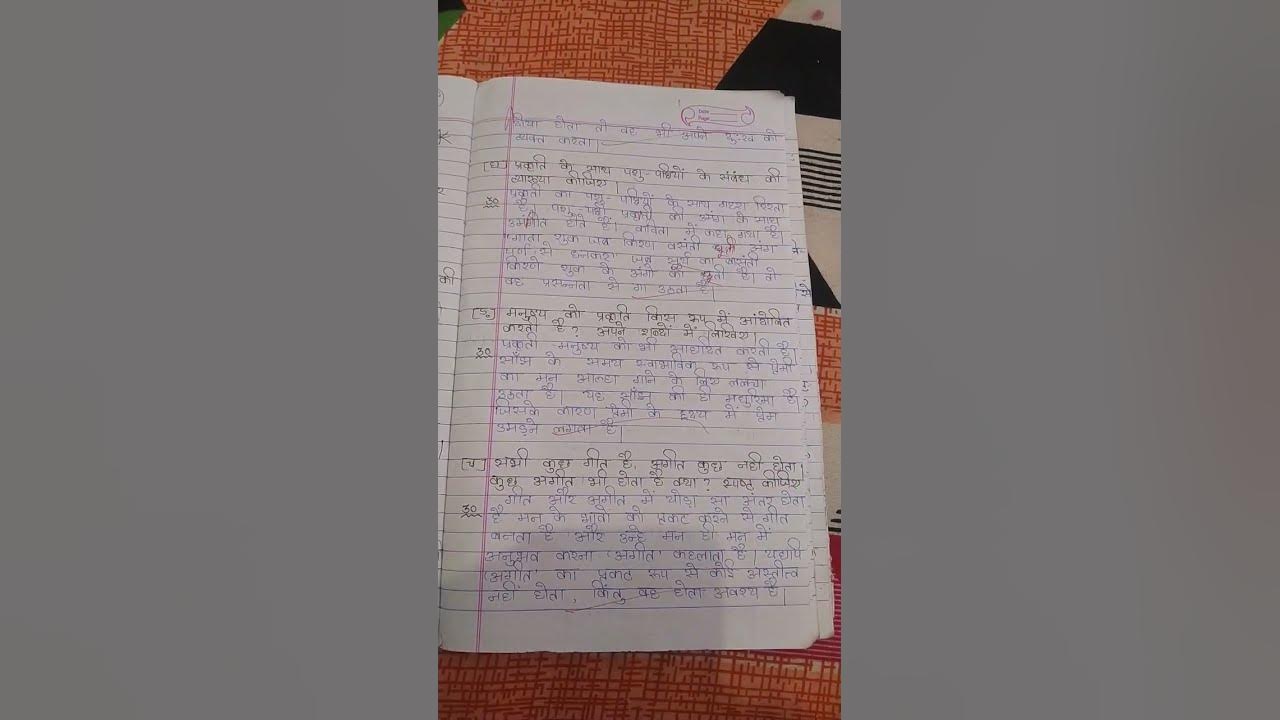 दिया होता तो वह भी अपने दुःख को
व्यक्त करता।
(घ) प्रकृति के साथ पशु-पक्षियों के संबंध की
व्याख्या कीजिए।
उ० प्रकृती का पशु-पक्षियों के साथ गहरा रिश्ता
है। पशु-पक्षी प्रकृती की अंग के साथ
उमंगीत होते हैं। कविता में कहा गया है।
गाता शुक जब किरण वसंती छूती अंग
पर्ण से छनकर। जब सूर्य का वासंती
किरणे शुक के अंगो को छूती है। तो
वह प्रसन्नता से गा उठता है।
(ङ) मनुष्य को प्रकृति किस रूप में आंदोलित
करती है? अपने शब्दों में लिखिए।
उ० प्रकृती मनुष्य को भी आंधोरित करती है।
साँझ के समय स्वाभाविक रूप से प्रेमी
का मन आल्हा गाने के लिए ललचा
उठता है। यह साँझ की ही मधुरिमा है।
जिसके कारण प्रेमी के हृदय में प्रेम
उमड़ने लगता है।
(च) सभी कुछ गीत है, अगीत कुछ नहीं होता।
कुछ अगीत भी होता है क्या? स्पष्ट कीजिए
गीत और अगीत में थोड़ा सा अंतर होता
उ० है मन के भावो को प्रकट करने से गीत
बनता है और उन्हे मन ही मन में
अनुभव करना 'अगीत' कहलाता है। यद्यपि
'अगीत' का प्रकट रूप से कोई अस्तीत्व
नहीं होता, किंतु वह होता अवश्य है।
की